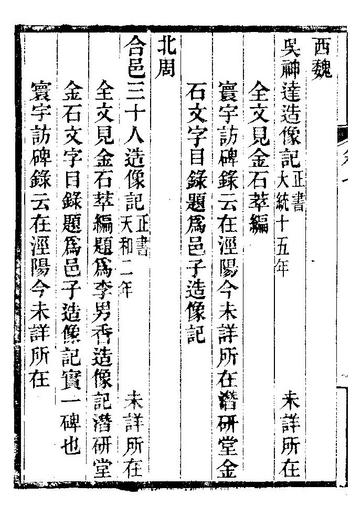 西魏
吳神達造像記正書大統十五年 未詳所在
全文見金石萃編
寰宇訪碑錄云在涇陽今未詳所在潛研堂金
石文字目錄題爲邑子造像記
北周
合邑三十人造像記正書天和二年 未詳所在
全文見金石萃編題爲李男香造像記潛研堂
金石文字目錄題爲邑子造像記實一碑也
寰宇訪碑錄云在涇陽今未詳所在